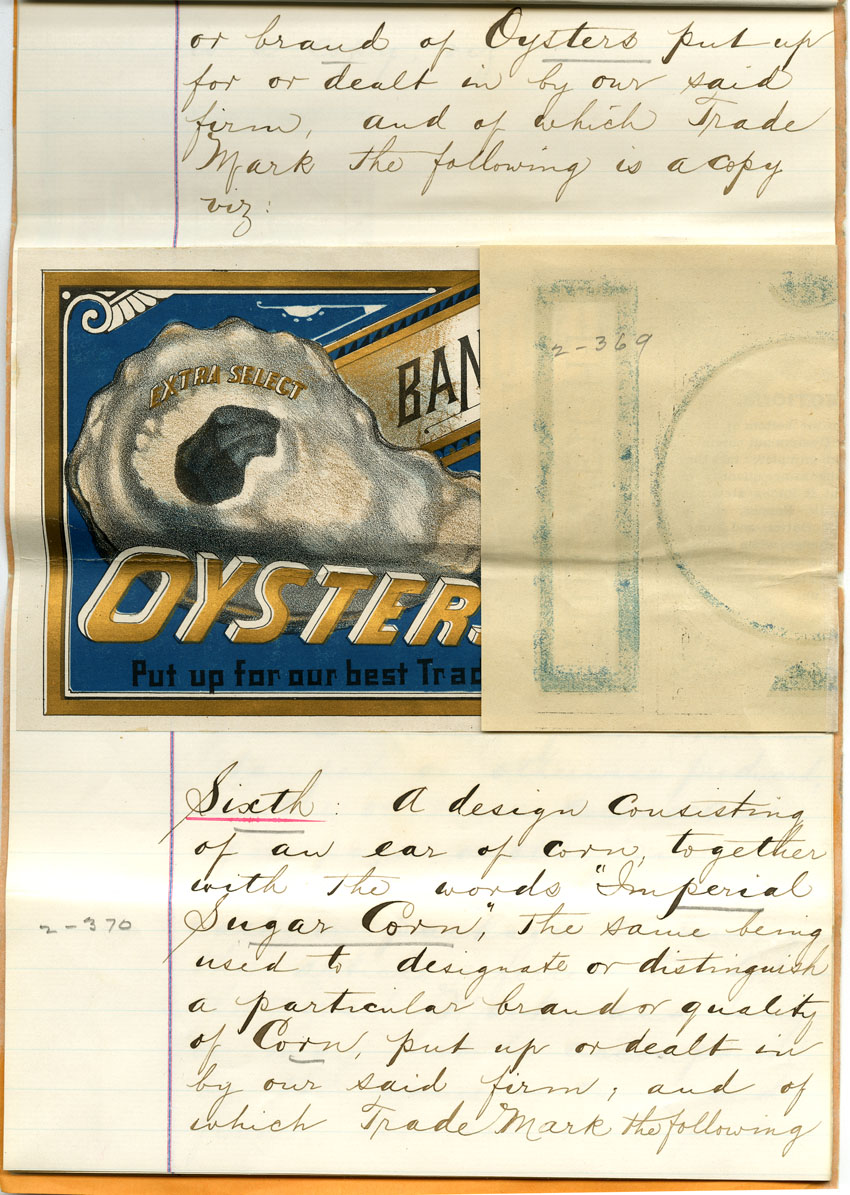 or brand of Oysters put up
for or dealt in by our said
firm, and of which Trade
Mark the following is a copy
viz:
EXTRA SELECT
BAN
2-369
OYSTERS
Put up for our best Trad
Sixth: A design consisting
of an ear of corn, together
with the words "Imperial
Sugar Corn", the same being
2-370
used to designate or distinguish
a particular brand or quality
of Corn, put up or dealt in
by our said firm; and of
which Trade Mark the following